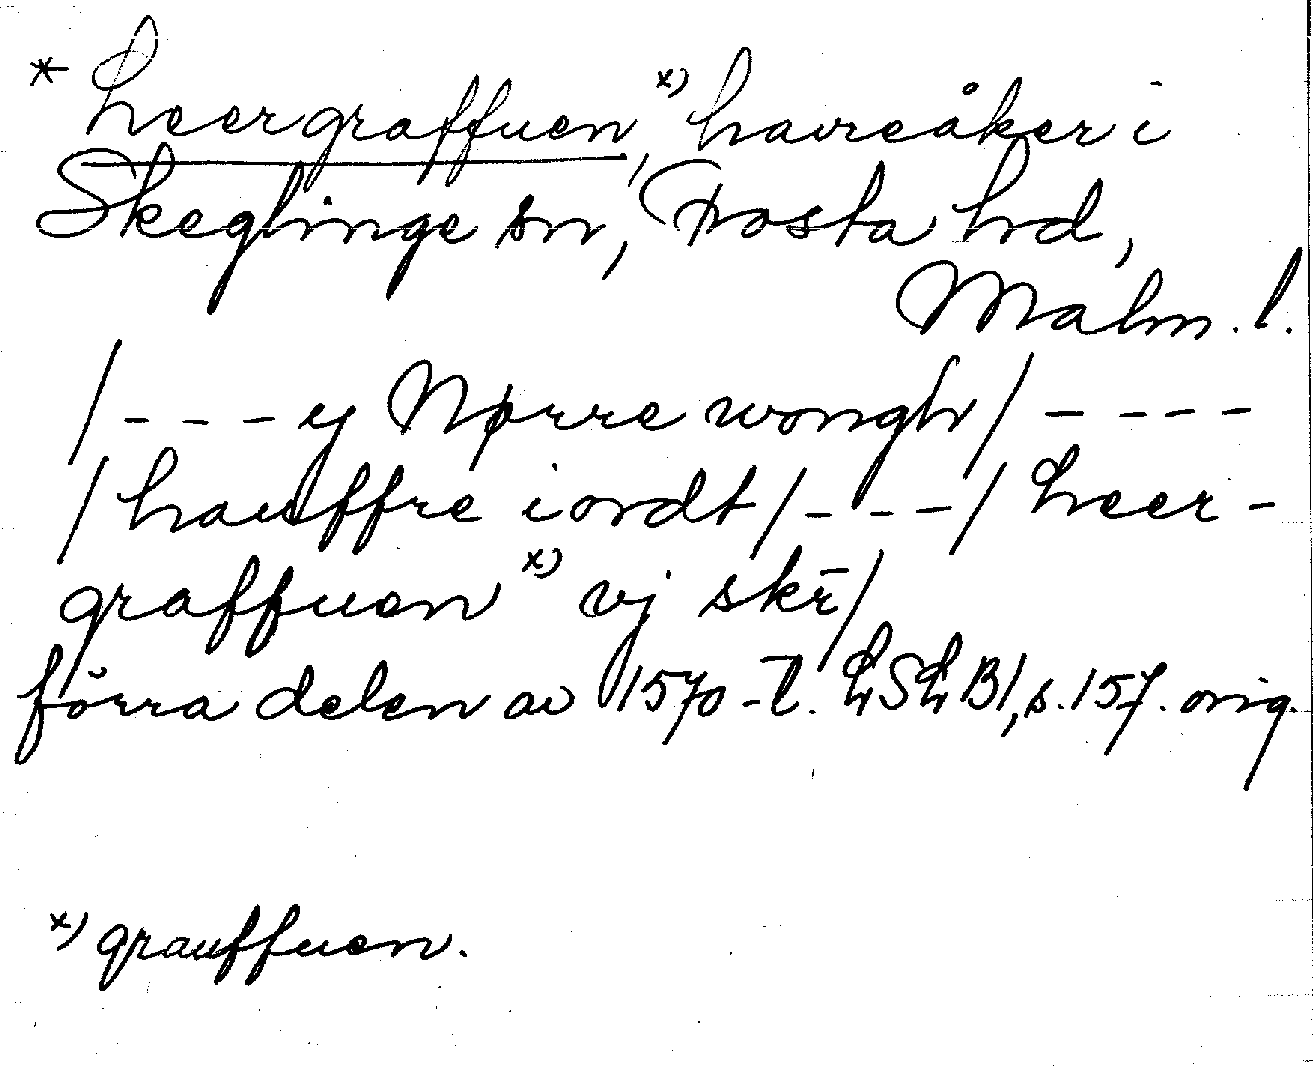 * heergraffuen,ˣ⁾ havreåker i
Skeglinge sn, Frosta hd,
Malm. l.
/ - - - y Nørre wongh / - - - -
/ hauffre iordt / - - - / heer-
graffuenˣ⁾ vj skr̄ /
förra delen av 1570-t. LSLB1, s. 157. orig.
ˣ⁾ grauffuen.